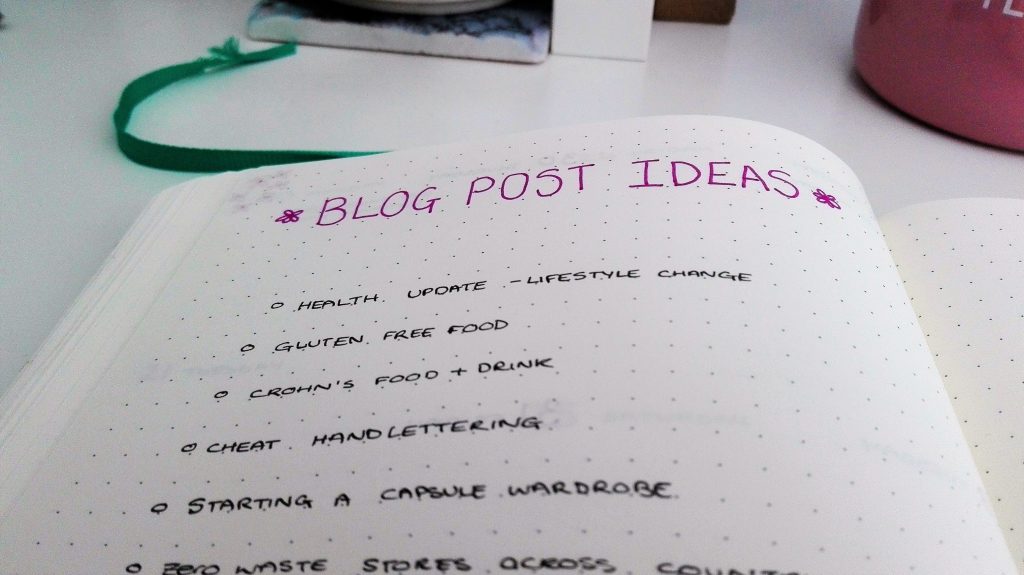 BLOG POST IDEAS
HEALTH UPDATE - LIFESTYLE CHANGE
GLUTEN FREE FOOD
CROHN'S FOOD + DRINK
CHEAT HANDLETTERING
STARTING A CAPSULE WARDROBE
ZERO WASTE STORES ACROSS